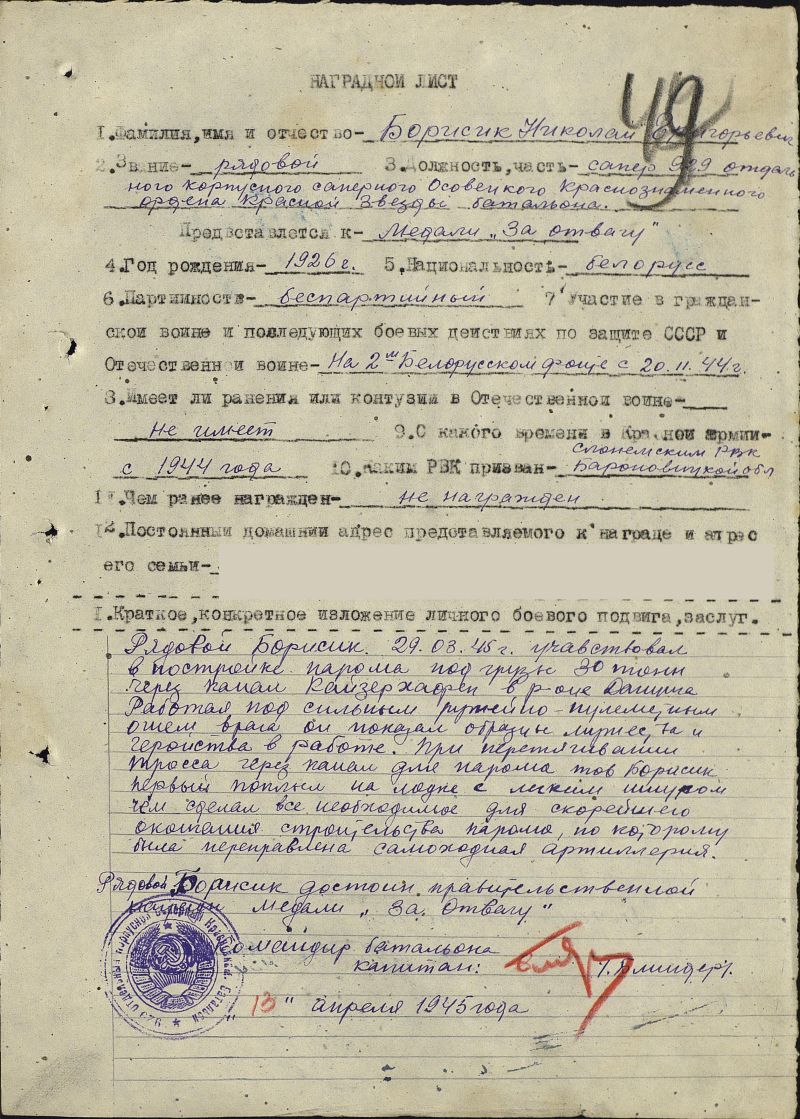 49
НАГРАДНОЙ ЛИСТ
1.Фамилия,имя и отчество- Борисик Николай Григорьевич
2.Звание- рядовой 3.Должность,часть- сапер 929 отдель
ного корпусного саперного Осовецкого Краснознаменного
ордена Красной Звезды батальона.
Предвставлется к- Медали „За отвагу"
4.Год рождения- 1926 г. 5.Национальность- белорусс
6.Партийность- беспартийный 7 Участие в граждан-
ской войне и последующих боевых действиях по защите СССР и
Отечественной войне- На 2м Белорусском фронте с 20.11.44г.
8.Имеет ли ранения или контузии в Отечественной войне-
не имеет 9.С какого времени в Красной армии-
с 1944 года 10.Каким РВК призван- Слонемским РВК
Барановицкой обл
11.Чем ранее награжден- не награжден
12.Постоянный домашний адрес представляемого к награде и адрес
его семьи-
1.Краткое,конкретное изложение личного боевого подвига,заслуг.
Рядовой Борисик 29.03.45г. учавствовал
в постройке парома под грузы 30 тонн
через канал Кайзерхафен в р-оне Данцига
Работая под сильным ружейно-пулеметным
огнем врага он показал образцы мужества и
геройства в работе. При перетягивании
троса через канал для парома тов Борисик
первый поплыл на лодке с легким шнуром
чем сделал все необходимое для скорейшего
окончания строительства парома, по которому
была переправлена самоходная артиллерия.
Рядовой Борисик достоин правительственной
награды медали „За Отвагу"
Командир батальона
капитан: /Блиндер/.
„13" апреля 1945 года